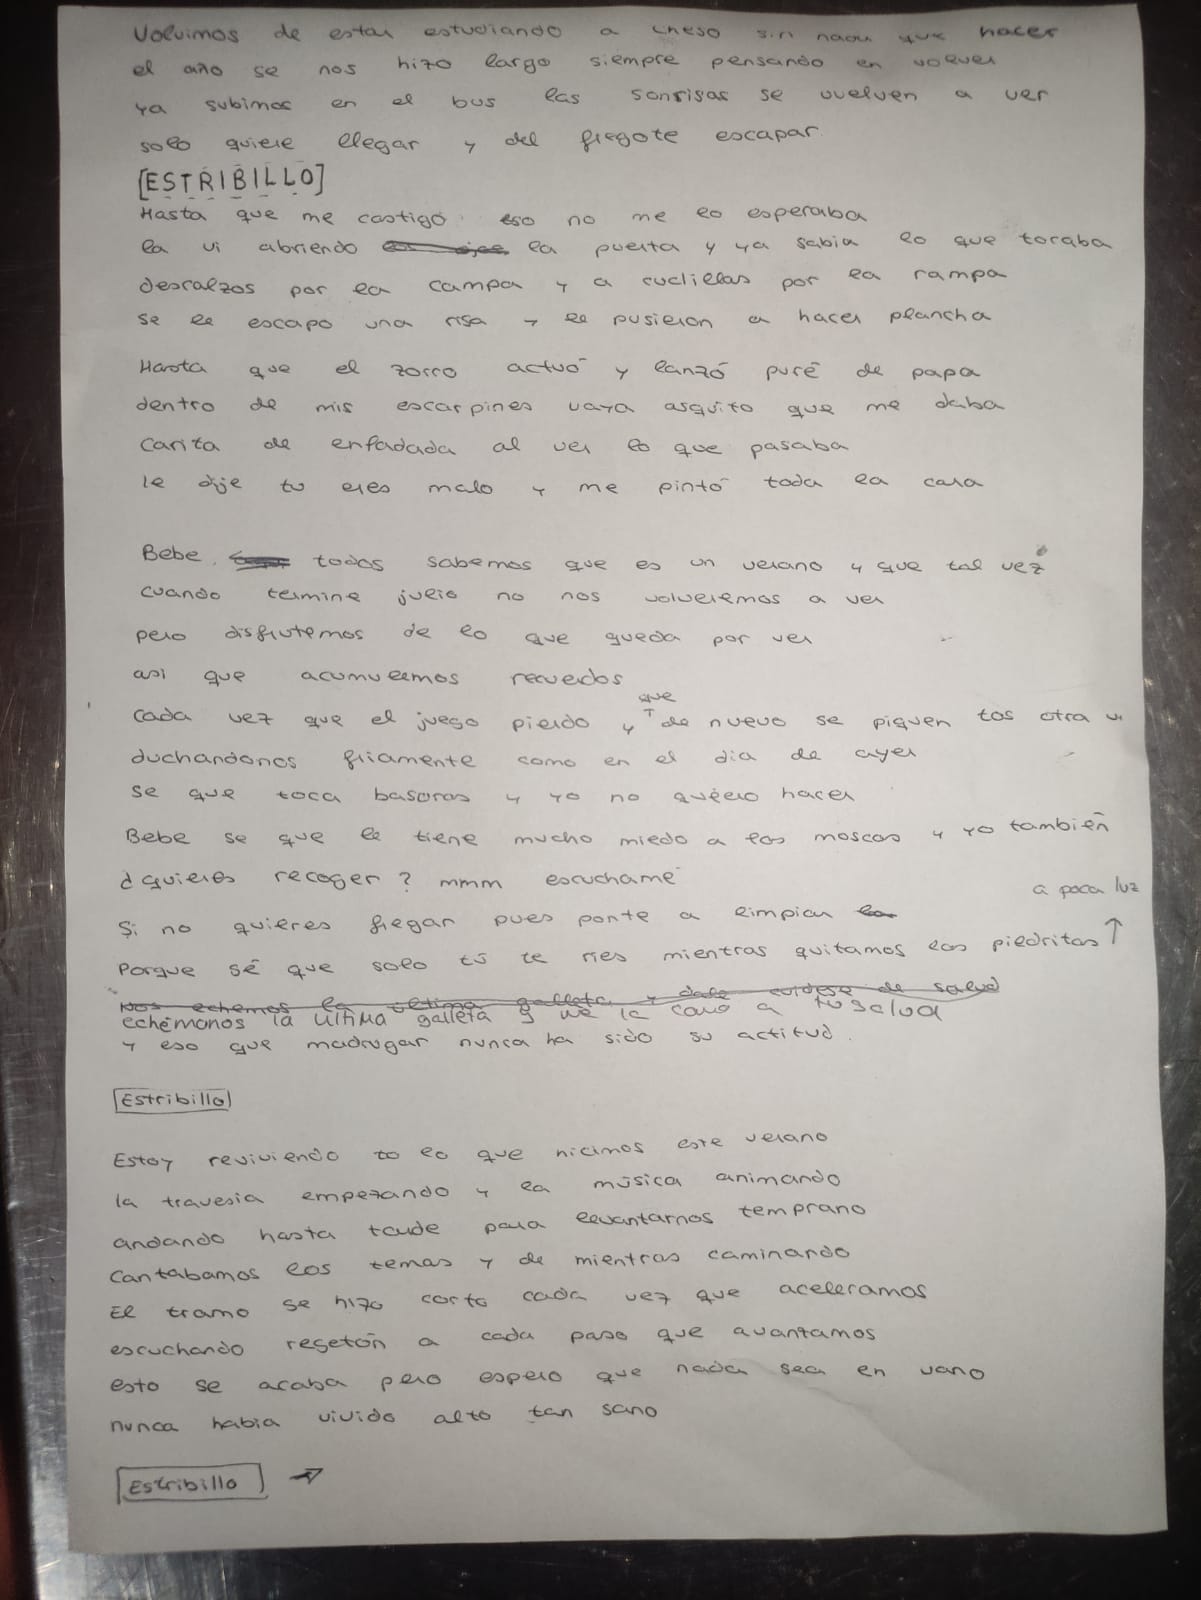 Volvimos de estar estudiando a sin nada que hacer
el año se nos hizo largo siempre pensando en volver
ya subimos en el bus las sonrisas se vuelven a ver
solo quiere llegar y del fregote escapar.
[ESTRIBILLO]
Hasta que me castigó eso no me lo esperaba
la vi abriendo la puerta y ya sabia lo que tocaba
descalzos por la campa y a cuclillas por la rampa
se le escapo una risa y le pusieron a hacer plancha
Hasta que el zorro actuó y lanzó puré de papa
dentro de mis escarpines vaya asquito que me daba
carita de enfadada al ver lo que pasaba
le dije tu eres malo y me pintó toda la cara
Bebe, todos sabemos que es un verano y que tal vez
cuando termine julio no nos volveremos a ver
pero disfrutemos de lo que queda por ver
asi que acumulemos recuerdos
cada vez que el juego pierdo y que de nuevo se piquen tos otra
duchandonos friamente como en el dia de ayer
se que toca basuras y yo no quiero hacer
Bebe se que le tiene mucho miedo a las moscas y yo también
¿quieres recoger? mmm escuchame
Si no quieres fregar pues ponte a limpiar
Porque sé que solo tú te ries mientras quitamos las piedritas ↑ a poca luz
Nos echemos la ultima galleta y dale de salud
echémonos la última galleta y me la como a tu salud
y eso que madrugar nunca ha sido su actitud.
[Estribillo]
Estoy reviviendo to lo que hicimos este verano
la travesia empezando y la música animando
andando hasta tarde para levantarnos temprano
cantabamos los temas y de mientras caminando
El tramo se hizo corto cada vez que aceleramos
escuchando regetón a cada paso que avantamos
esto se acaba pero espero que nada sea en vano
nunca habia vivido alto tan sano
[Estribillo] →